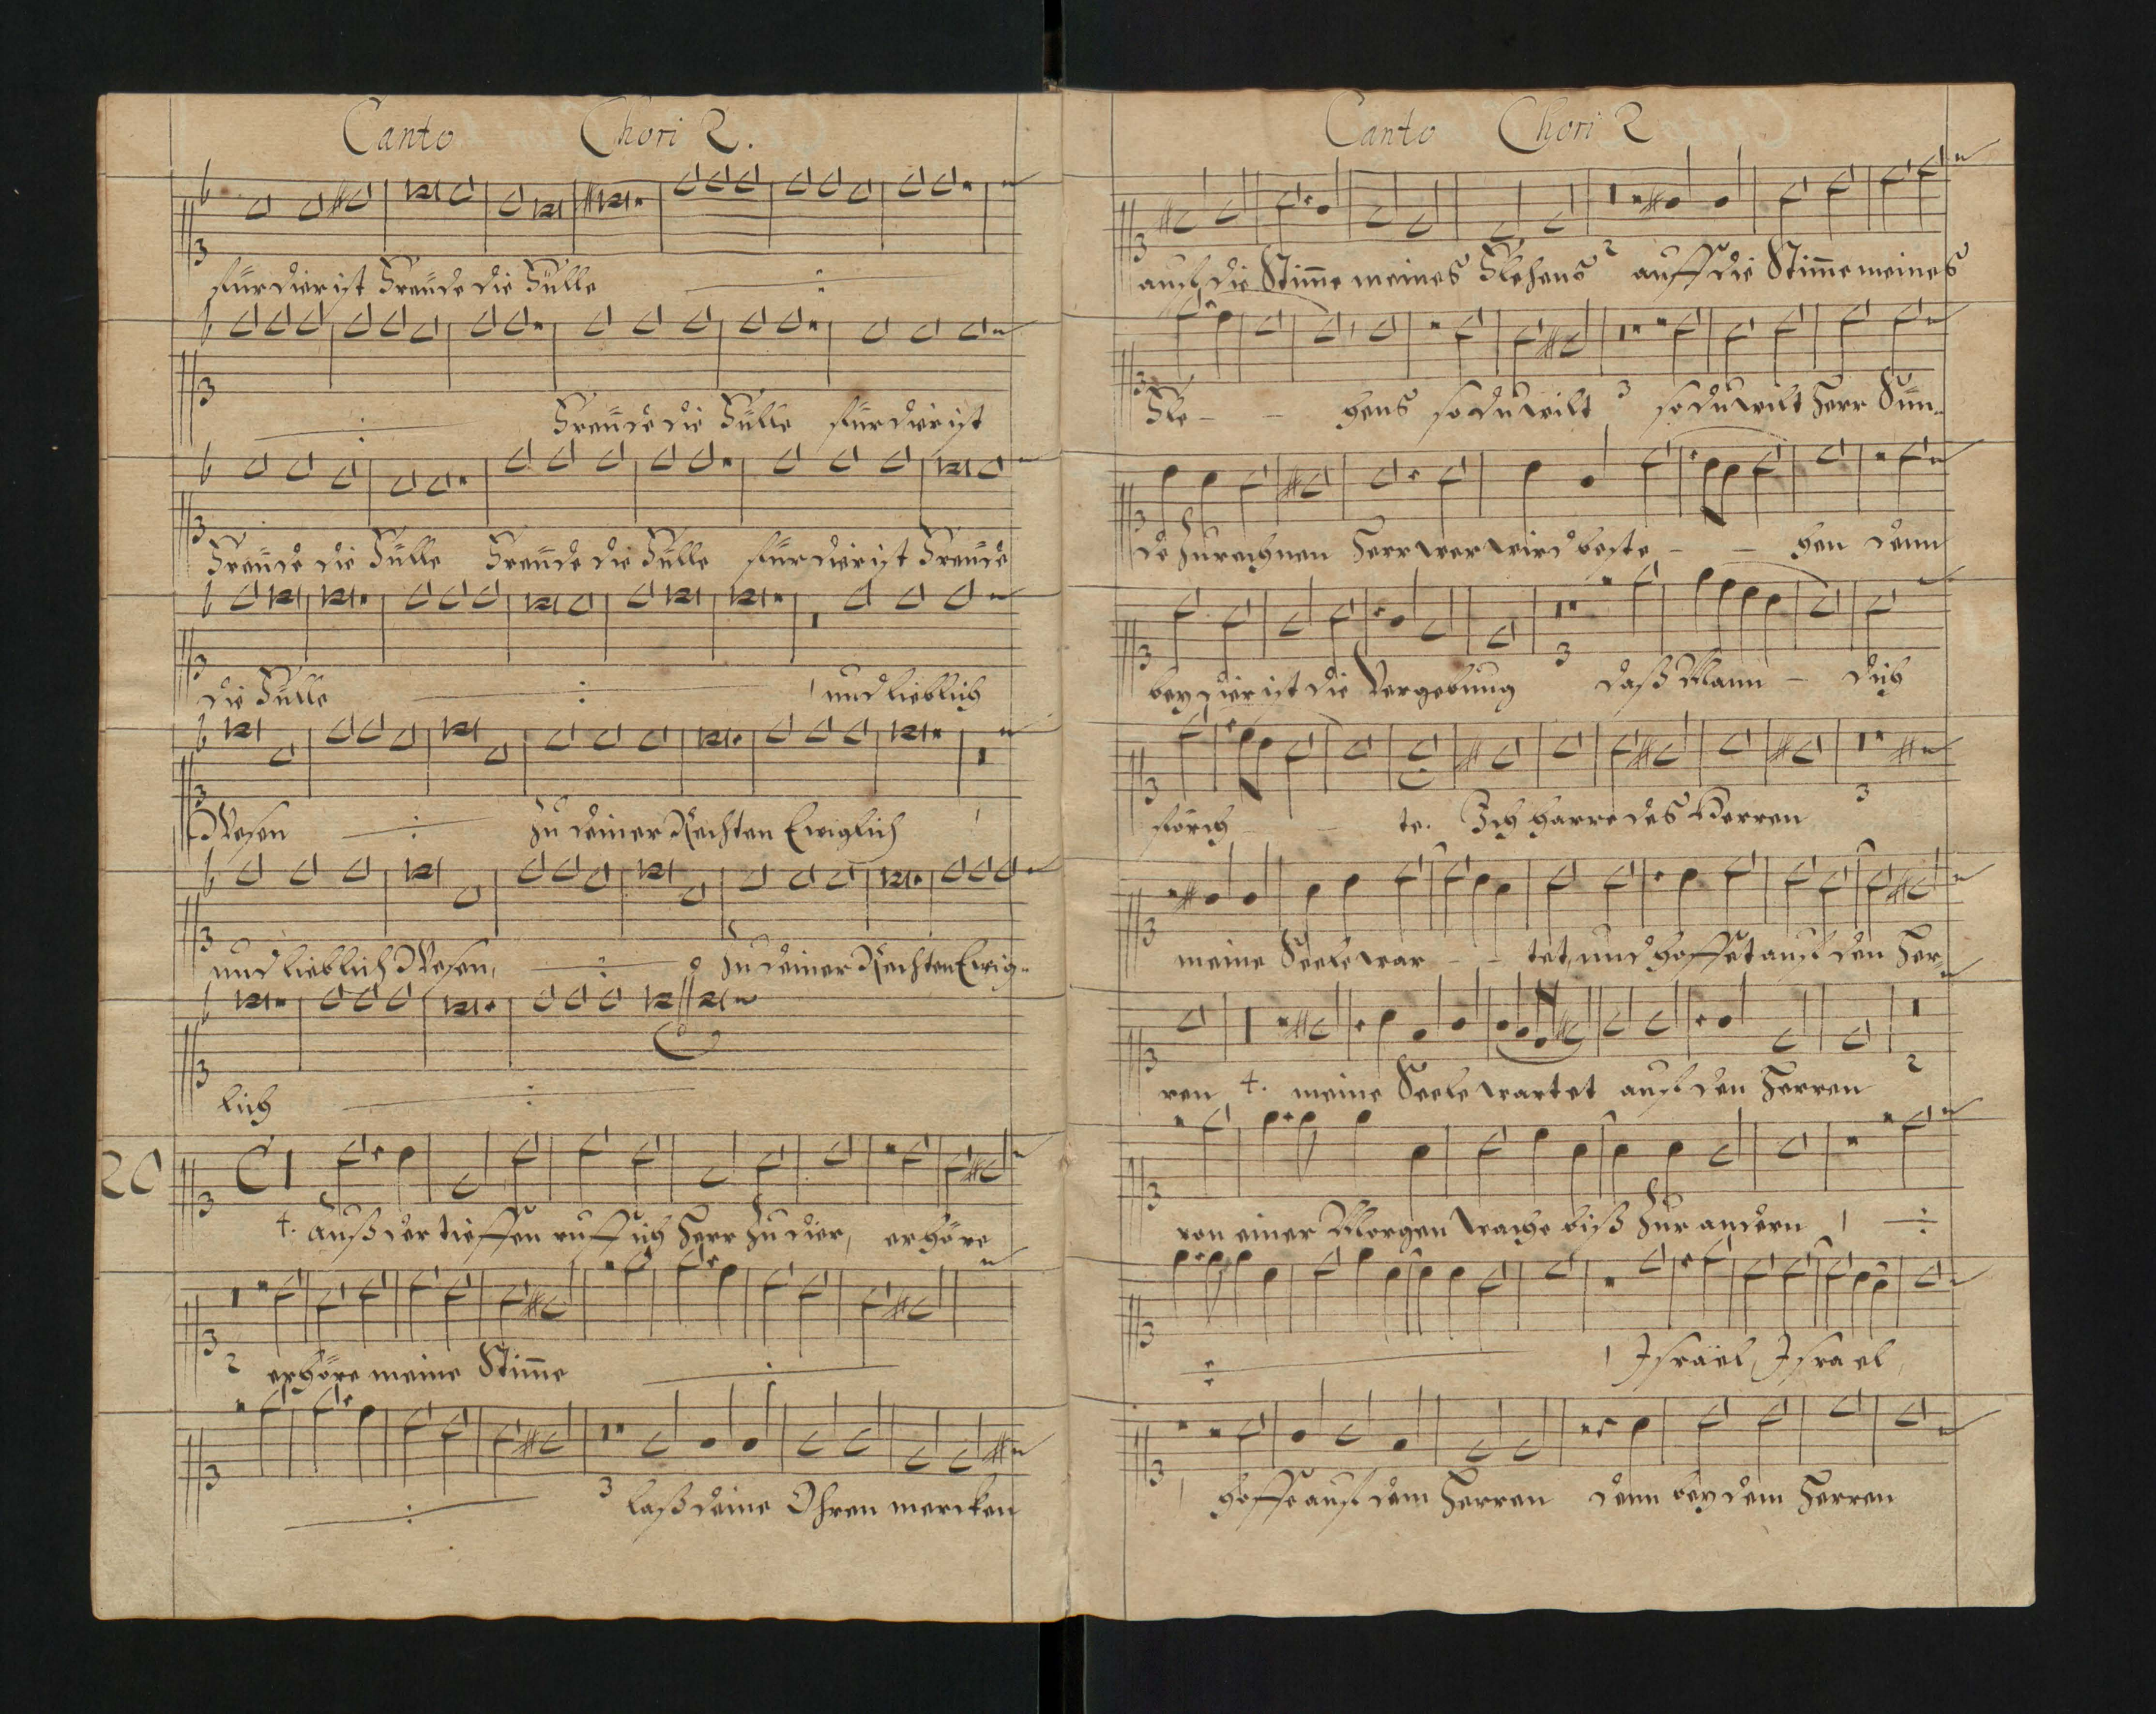 Canto Chori 2.
für dier ist Freüde die Fülle
Freüde die Fülle für dier ist
Freüde die Fülle Freüde die Fülle für dier ist Freüde
die Fülle und lieblich
Wesen zu deiner Rechten Ewiglich
und lieblich Wesen, zu deiner Rechten Ewig-
lich
20
4. Auß der tieffen ruff ich Herr zu dier, erhöre
2 erhöre meine Stim̄e
3 laß deine Ohren mercken
Canto Chori 2
auf die Stim̄e meines Flehens 2 auff die Stim̄e meines
Fle - - hens so du wilt 3 so du wilt Herr Sün-
de zurechnen Herr wer wird beste - - hen denn
bey dier ist die Vergebung 3 daß Mann - dich
förch - te. Ich harre des Herren 3
meine Seele war - - tet, und hoffet auf den Her-
ren 4. meine Seele wartet auf den Herren 2
von einer Morgen wache biß zur andern
Israel, Israel,
hoffe auf dem Herren denn bey dem Herren